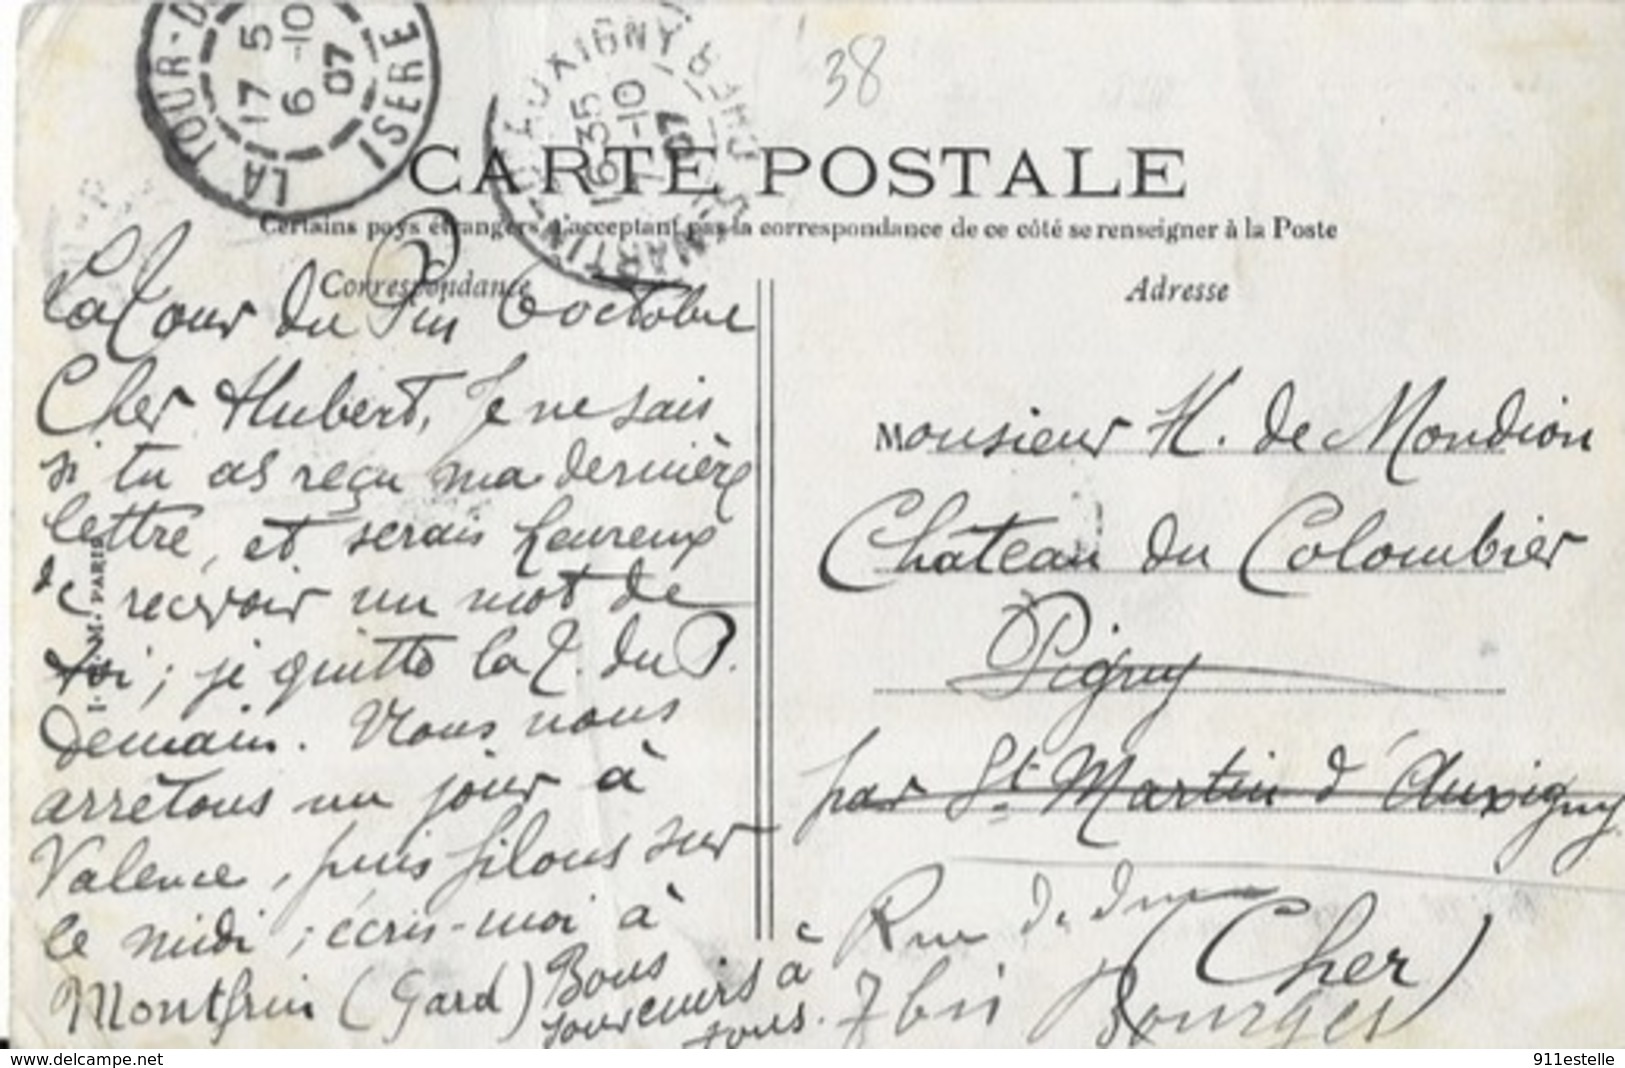 LA TOUR-D
ISERE
17 5
6 -10
07
AUXIGNY
CHER
ST MARTIN
16 35
-10
07
38
CARTE POSTALE
Certains pays étrangers n'acceptant pas la correspondance de ce côté se renseigner à la Poste
Correspondance
Adresse
La Tour du Pin 6 octobre
Cher Hubert, Je ne sais
si tu as reçu ma dernière
lettre, et serais heureux
de recevoir un mot de
toi ; je quitte la T. du P.
demain. Nous nous
arrêtons un jour à
Valence, puis filons sur
le midi ; écris-moi à
Montfrin (Gard) Bons
souvenirs à
tous.
M. PARIS
Monsieur H. de Mondion
Chateau du Colombier
Pigny
par St. Martin d'Auxigny
(Cher)
Rue de
7 bis Bourges
www.delcampe.net
911estelle